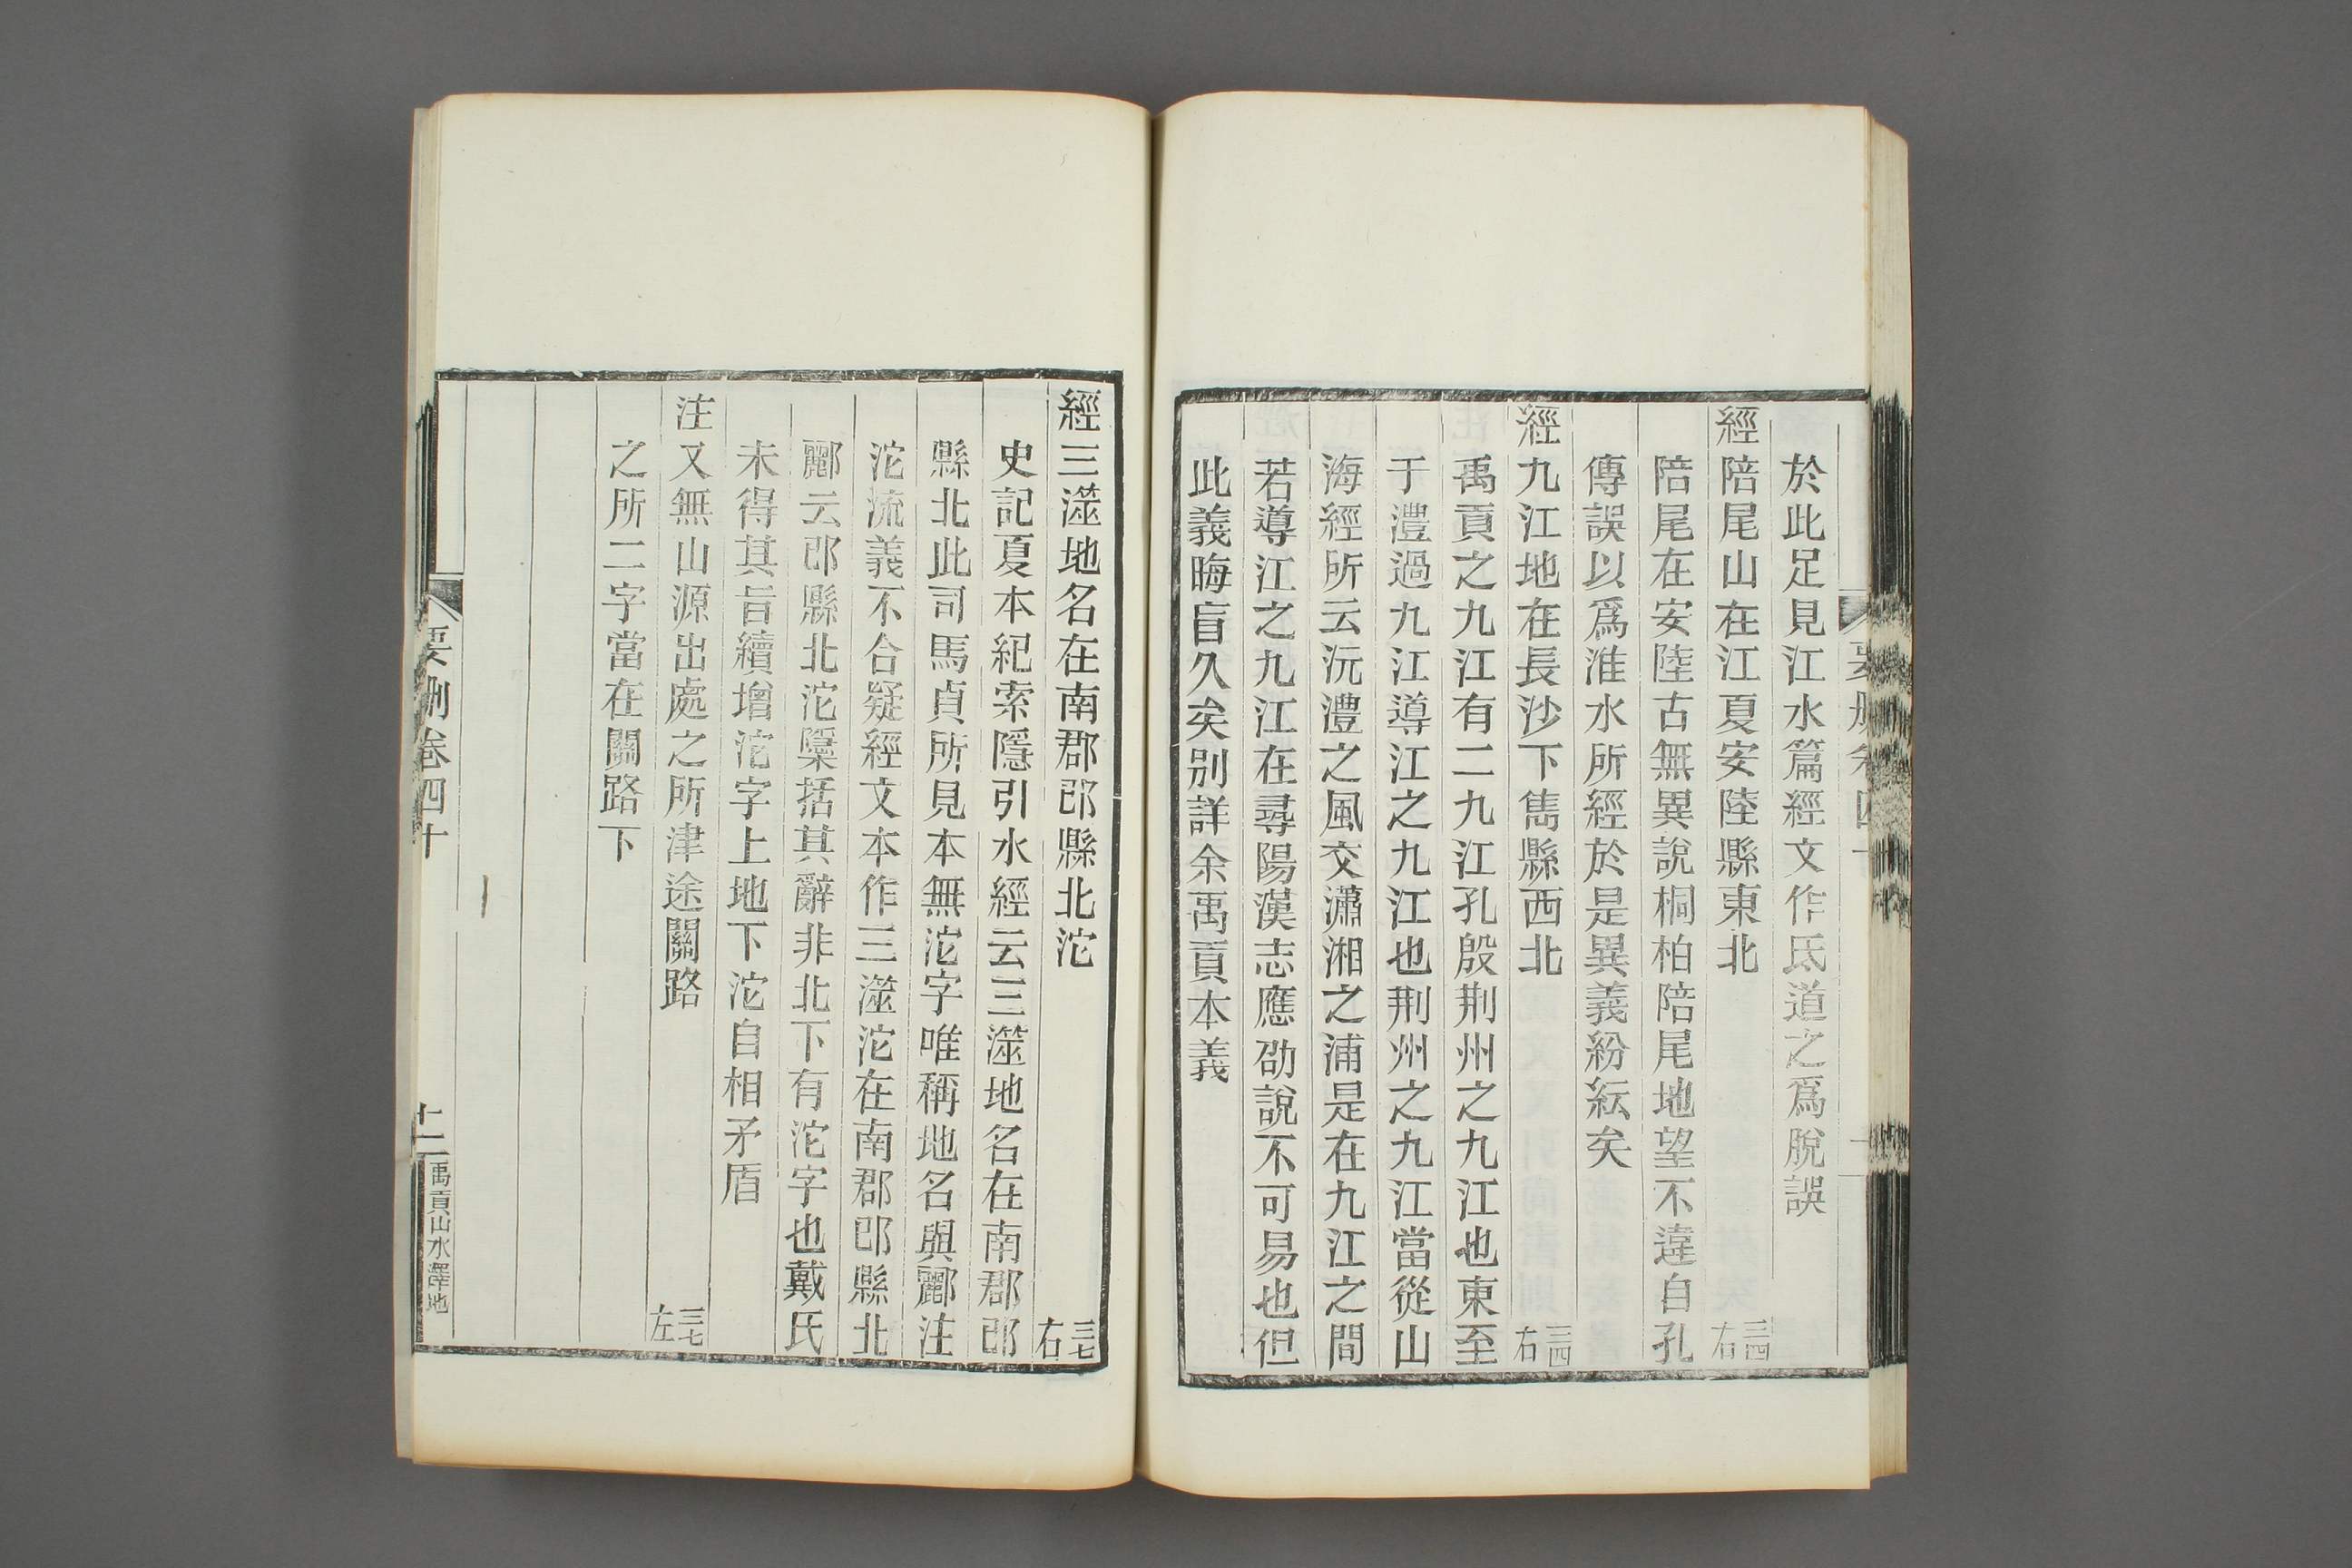 於此足見江水篇經文作氐道之爲脫誤
經陪尾山在江夏安陸縣東北 三四右
陪尾在安陸古無異說桐柏陪尾地望不違自孔
傳誤以爲淮水所經於是異義紛紜矣
經九江地在長沙下雋縣西北 三四右
禹貢之九江有二九江孔殷荆州之九江也東至
于澧過九江導江之九江也荆州之九江當從山
海經所云沅澧之風交瀟湘之浦是在九江之間
若導江之九江在尋陽漢志應劭說不可易也但
此義晦盲久矣別詳余禹貢本義
經三澨地名在南郡邔縣北沱 三七右
史記夏本紀索隱引水經云三澨地名在南郡邔
縣北此司馬貞所見本無沱字唯稱地名與酈注
沱流義不合疑經文本作三澨沱在南郡邔縣北
酈云邔縣北沱檃括其辭非北下有沱字也戴氏
未得其旨續增沱字上地下沱自相矛盾
注又無山源出處之所津途關路 三七左
之所二字當在關路下
要删卷四十
十二
禹貢山水澤地